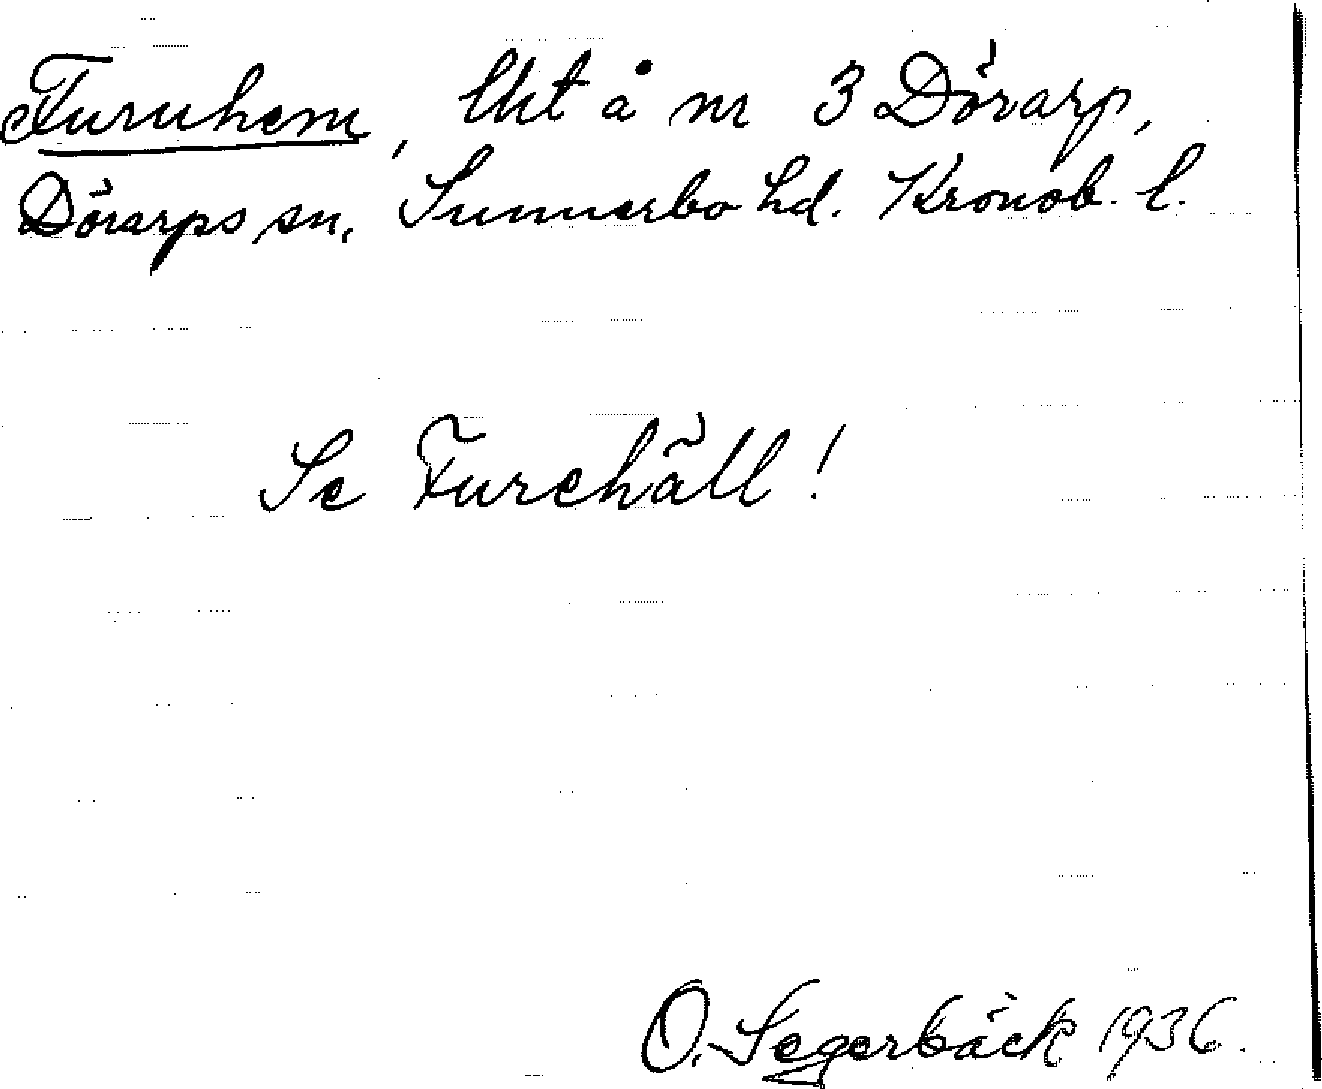 Furuhem, lht å nr 3 Dörarp,
Dörarps sn, Sunnerbo hd. Kronob. l.
Se Furehäll!
O. Segerbäck 1936.